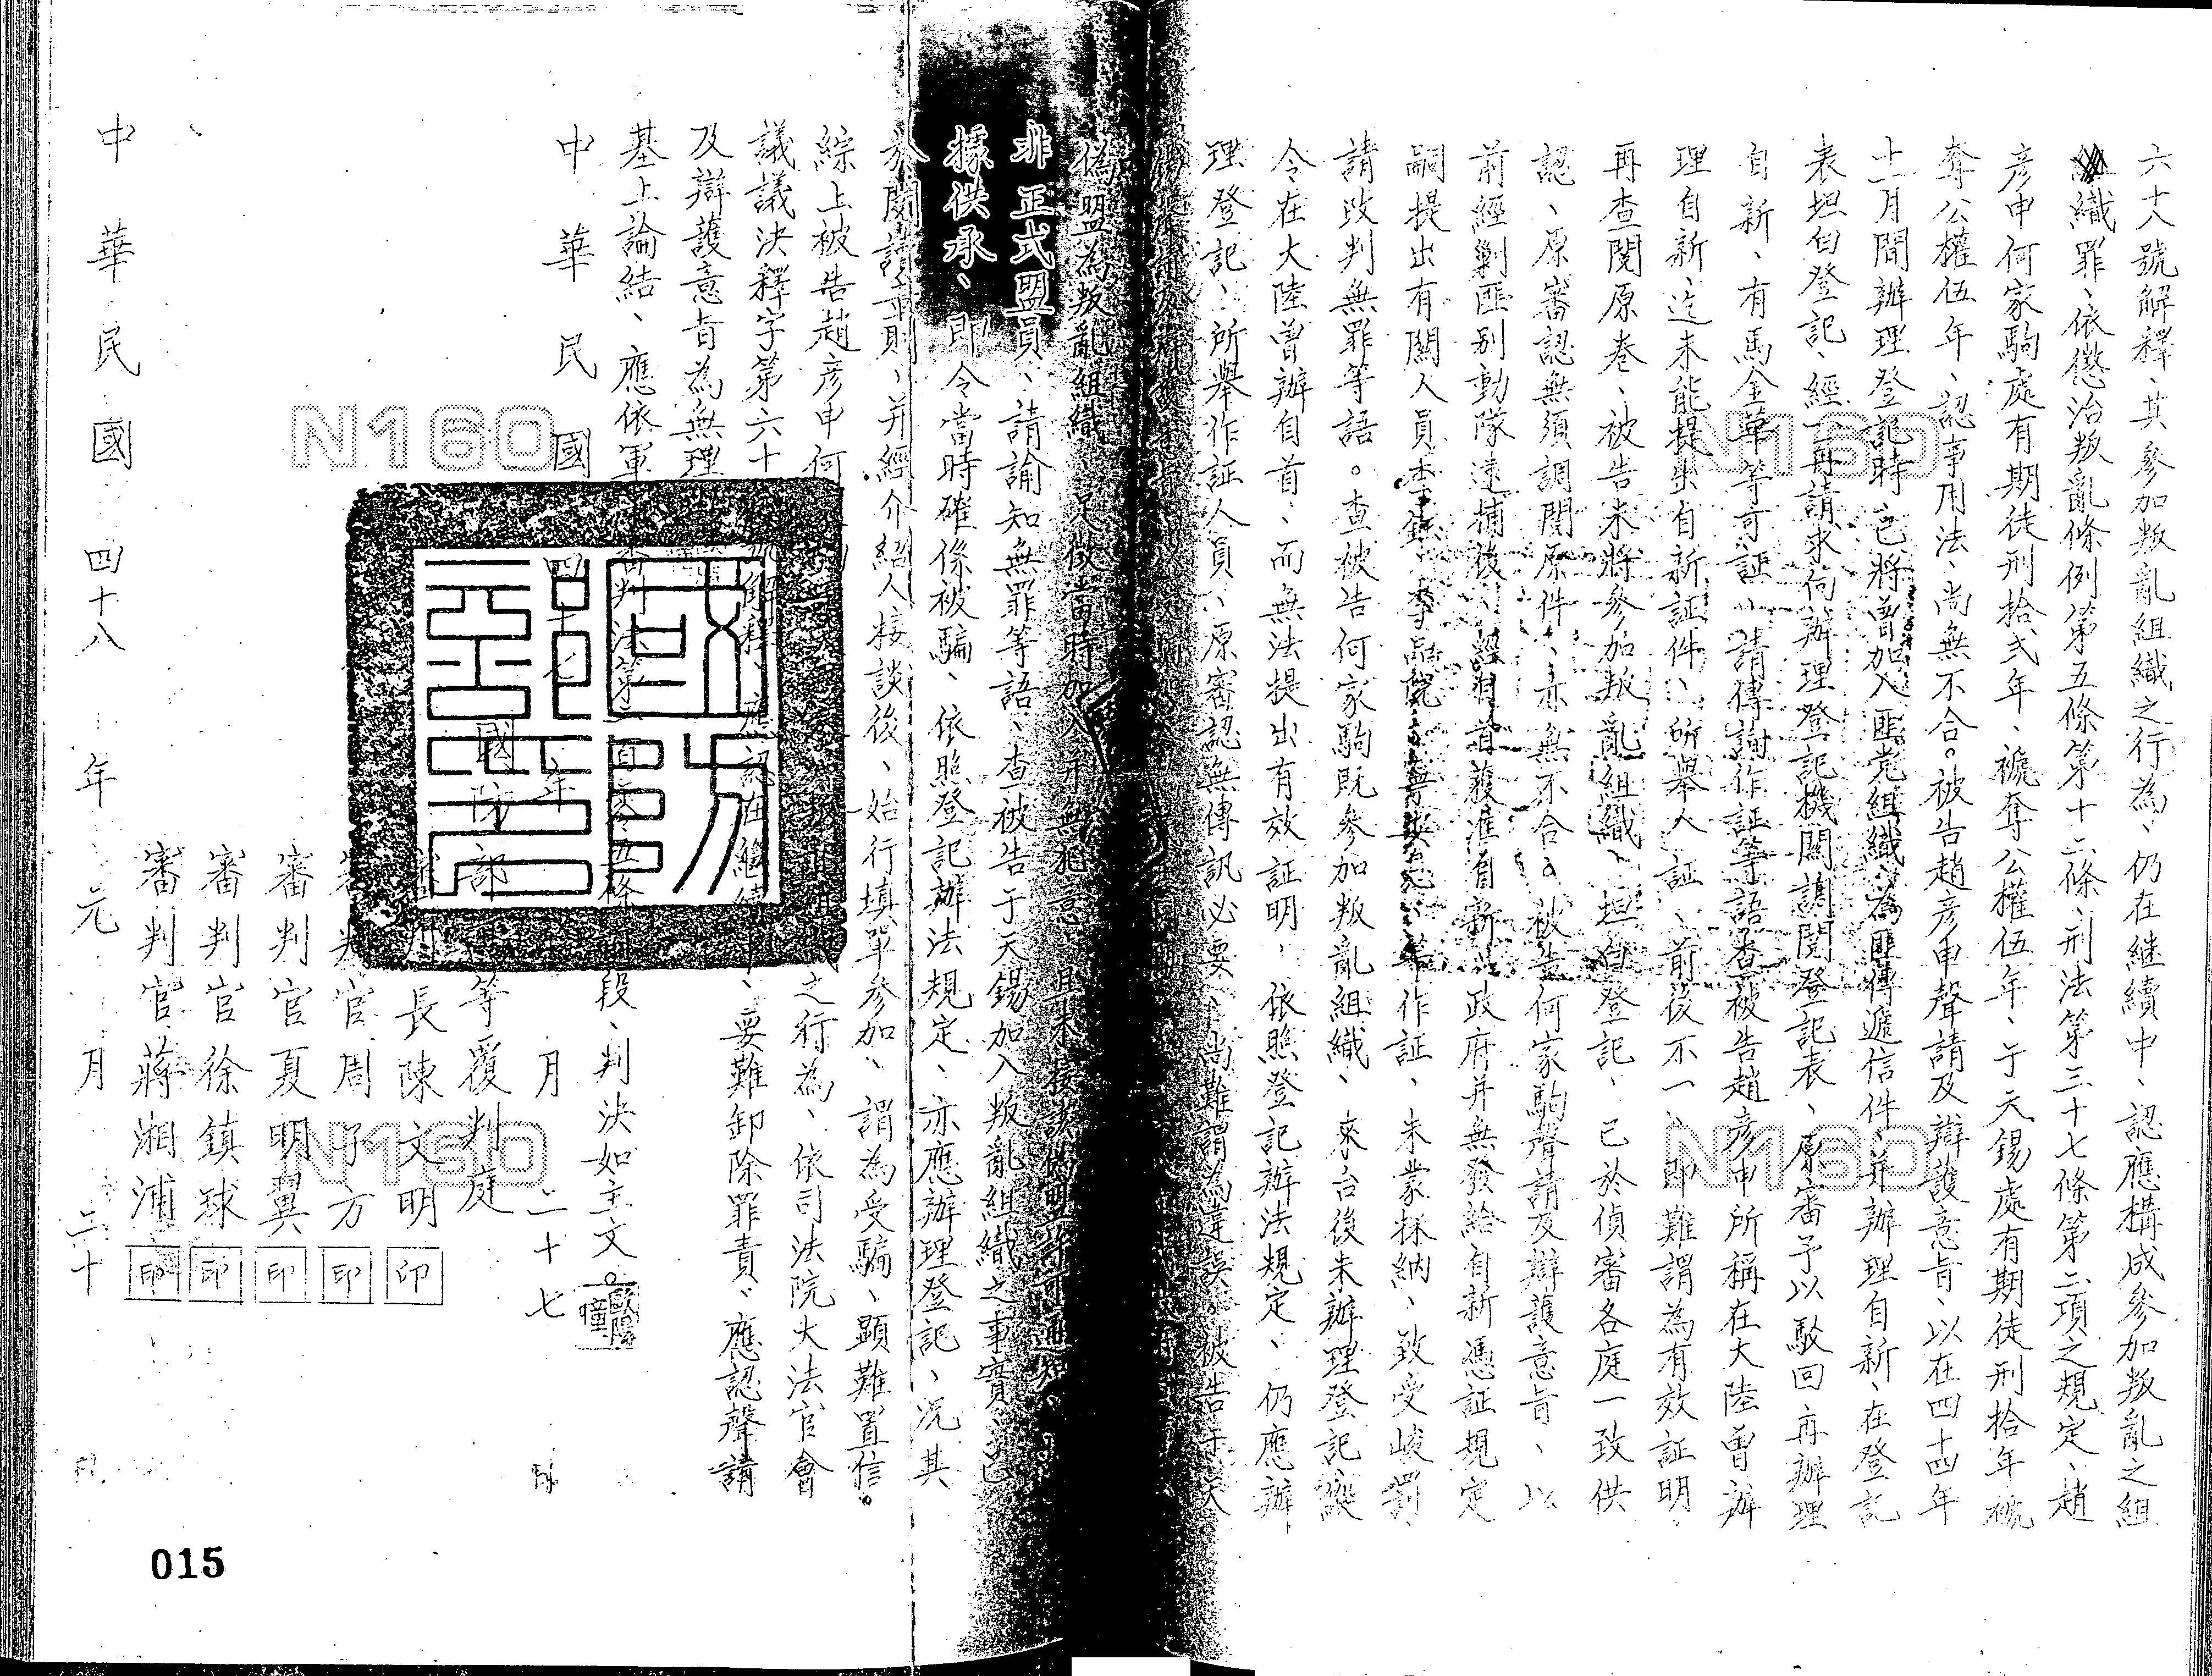 六十八號解釋、其參加叛亂組織之行為、仍在継續中、認應構成參加叛亂之組
織罪、依懲治叛亂條例第五條第十二條、刑法第三十七條第二項之規定、趙
彥申何家駒處有期徒刑拾弍年、褫奪公權伍年、于天錫處有期徒刑拾年褫
奪公權伍年、認事用法、尚無不合。被告趙彥申聲請及辯護意旨、以在四十四年
十一月間辦理登記時已將曾加入匪党組織、為匪傳遞信件、并辦理自新、在登記
表坦白登記、經一再請求向辦理登記機關調閱登記表、原審予以駁回再辦理
自新、有馬金華等可証、請傳詢作証等語查被告趙彥申所稱在大陸曾辦
理自新、迄未能提出自新証件、所舉人証、前後不一、即難謂為有效証明、
再查閱原卷、被告未將參加叛亂組織、坦白登記、已於偵審各庭一致供
認、原審認無須調閱原件、亦無不合。被告何家駒聲請及辯護意旨、以
前經剿匪別動隊逮捕後、經自首獲准自新、政府并無發給自新憑証規定
嗣提出有關人員李 等作証、未蒙採納、致受峻罰、
請改判無罪等語。查被告何家駒既參加叛亂組織、來台後未辦理登記縱
令在大陸曾辦自首、而無法提出有效証明，依照登記辦法規定、仍應辦
理登記、所舉作証人員、原審認無傳訊必要、尚難謂為違誤。被告于天
偽盟為叛亂組織 足徵當時加入并無犯意、且未接該偽盟
非正式盟員、請諭知無罪等語、查被告于天錫加入叛亂組織之事實、已
據供承、即令當時確係被騙、依照登記辦法規定、亦應辦理登記、況其
於閱讀 則、并經介紹人接談後、始行填單參加、謂為受騙、顯難置信。
綜上被告趙彥申何 之行為、依司法院大法官會
議議決釋字第六十 解釋、應認在継續 、要難卸除罪責、應認聲請
及辯護意旨為無理
基上論結、應依軍 審判法第 百零五條 段、判決如主文。
中華民國四十七年 月二十七
國防部 等覆判庭
長陳文明 印
判官周 方 印
審判官夏明翼 印
審判官徐鎮球 印
審判官蔣湘浦 印
中華民國四十八年元月二十
N160
N160
N160
N160
015